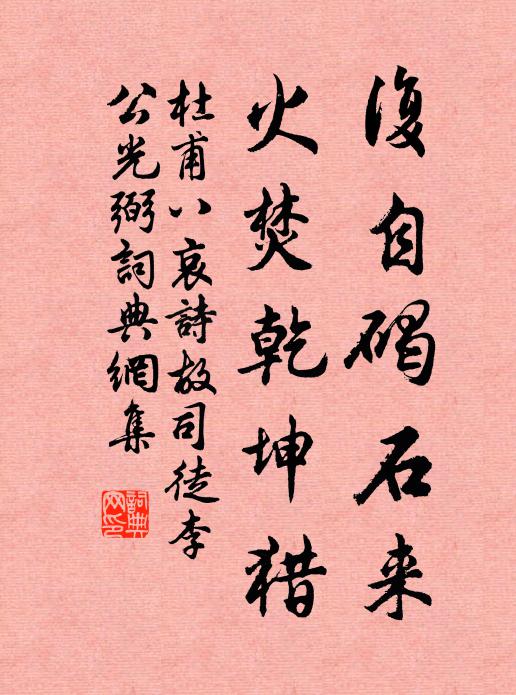 復自碣石来
火焚乾坤猎
杜甫八哀詩故司徒李
公光弼詞典網集
詞典网印